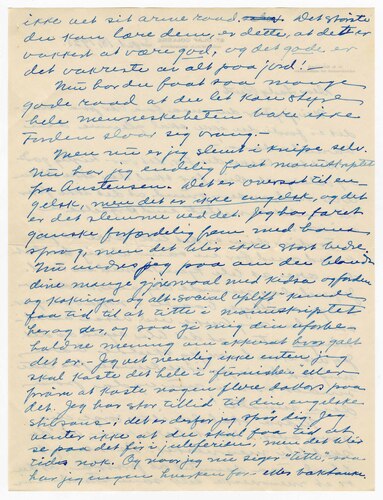 ikke vet sit arme raad. Det största
du kan lære dem, er dette, at det er
vakkert at være god, og det gode er
det vakreste av alt paa jord! —
Nu har du faat saa mange
gode raad at du let kan styre
hele menneskeheten bare ikke
Fanden slaar sig vrang. —
Men nu er jeg slemt i knipe selv.
Nu har jeg endelig faat manuskriptet
fra Austensen. Det er oversat til en-
gelsk, men det er ikke engelsk, og det
er det slemme ved det. Jeg har faret
ganske forfærdelig frem med hans
sprog, men det blir ikke stort bedre.
Nu undres jeg paa om du blandt
dine mange gjøremaal med
og og alt "social uplift" kunde
faa tid til at titte i manuskriptet
her og der, og saa gi mig din uforbe-
holdne mening om akkurat hvor galt
det er. — Jeg vet nemlig ikke enten jeg
skal kaste det hele i eller
fram at koste nogen flere dollars paa
det. Jeg har stor tillid til din engelske
; det er derfor jeg spør dig. Jeg
venter ikke at du skal faa tid at
se paa det før i juleferien, men det blir
tids nok. Og naar jeg nu siger "titte" saa
har jeg ingen hverken for- eller baktanke